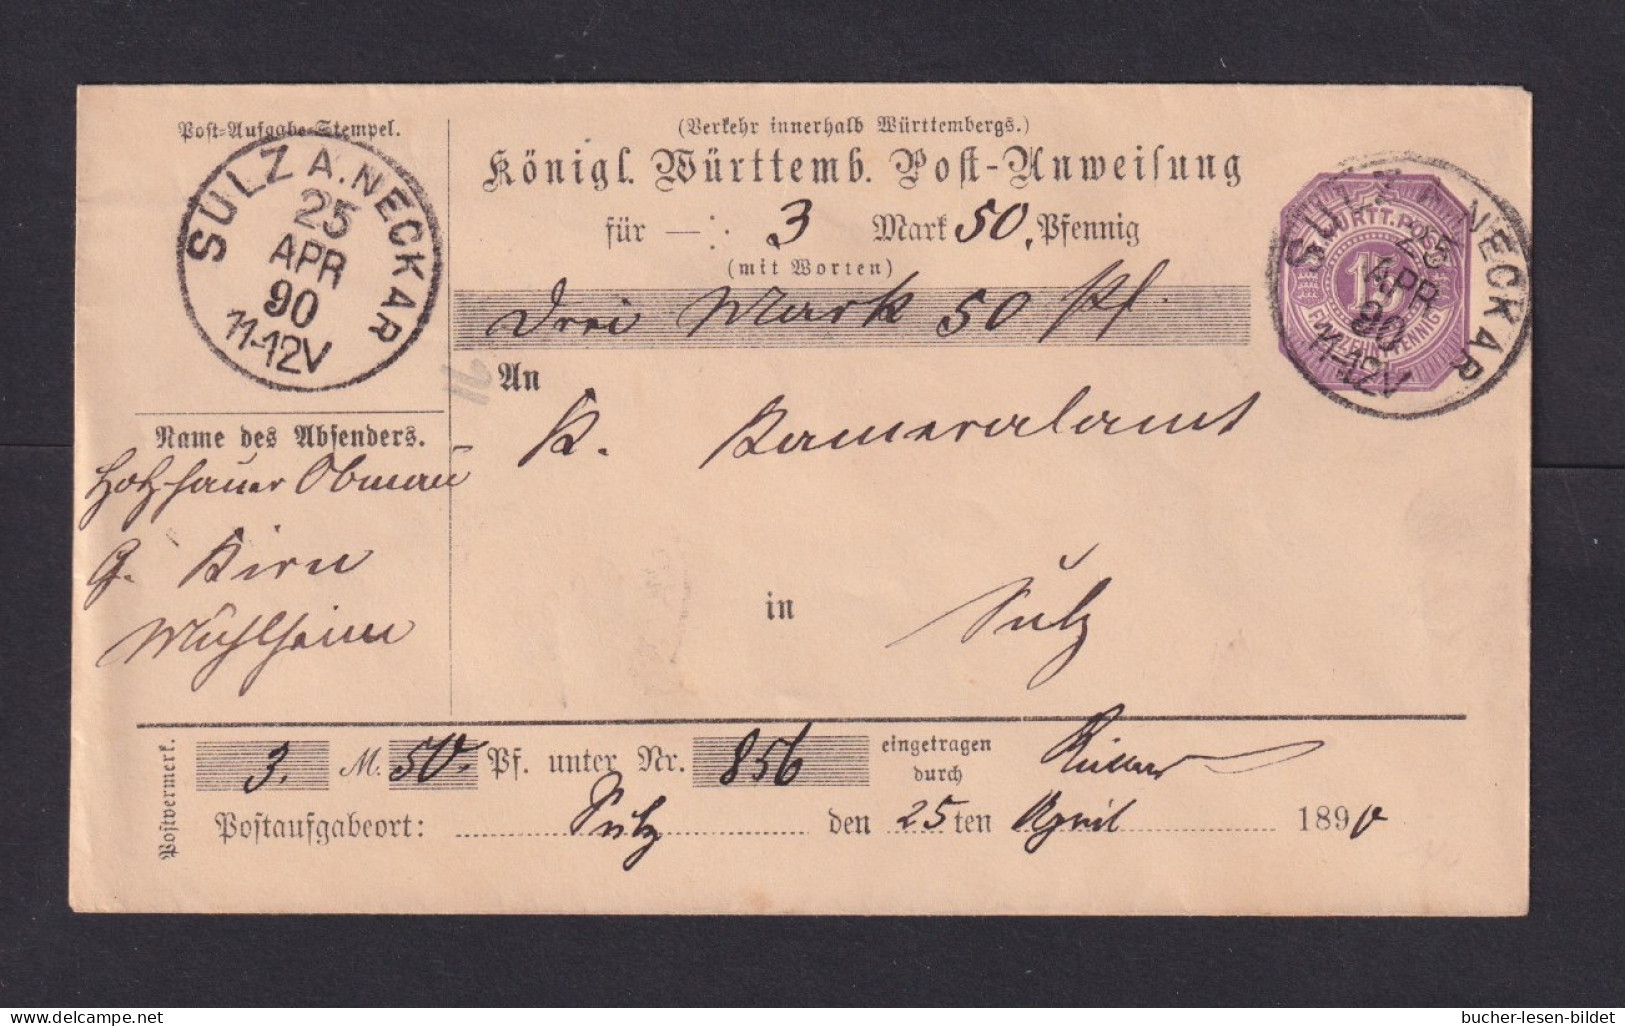 Post-Aufgabe-Stempel.
SULZ A. NECKAR
25
APR
90
11-12V
(Verkehr innerhalb Württembergs.)
Königl. Württemb. Post-Anweisung
für —: 3 Mark 50. Pfennig
(mit Worten)
Drei Mark 50 Pf.
K. WÜRTT. POST
15
FÜNFZEHN PFENNIG
SULZ A. NECKAR
25
APR
90
11-12V
An
K. Kameralamt
in Sulz
Name des Absenders.
Holzhauer Obmann
G. Kirn
Mühlheim
Postvermerk.
3. M. 50. Pf. unter Nr. 856 eingetragen
durch
Postaufgabeort: Sulz den 25ten April 1890
bucher-lesen-bildet